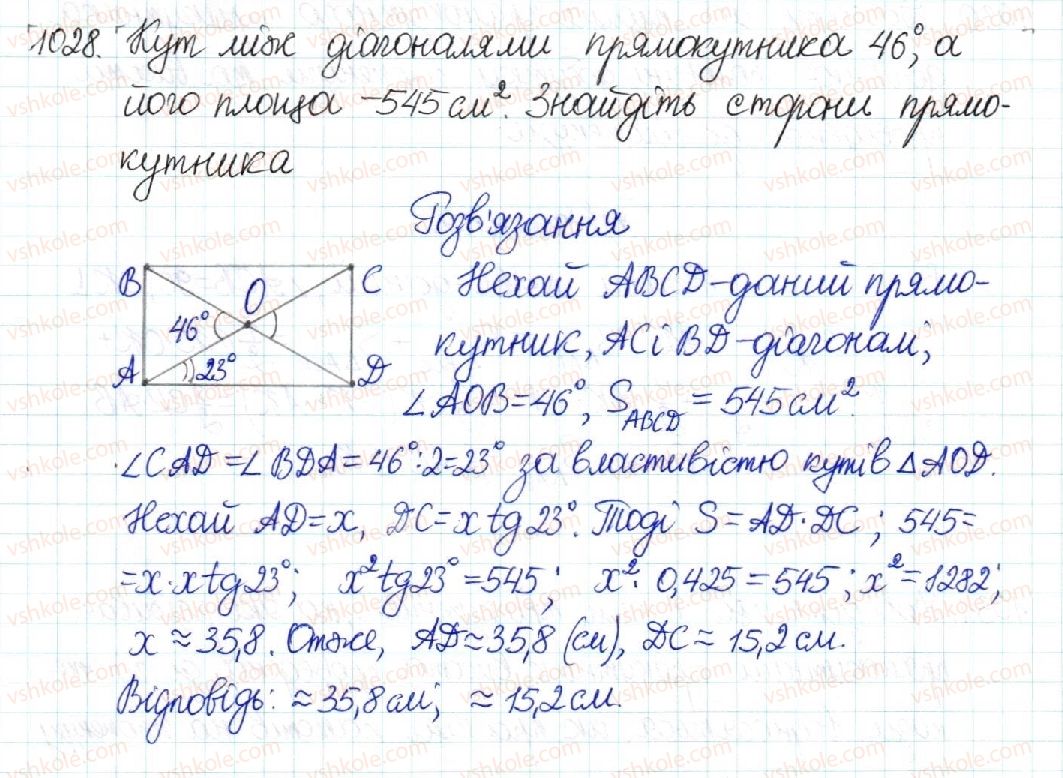 1028. Кут між діагоналями прямокутника 46°, а
його площа – 545 см². Знайдіть сторони прямо-
кутника
Розв'язання
B C O 46° A 23° D
Нехай ABCD – даний прямо-
кутник, AC і BD – діагоналі,
∠AOB = 46°, S_ABCD = 545 см².
∠CAD = ∠BDA = 46° : 2 = 23° за властивістю кутів △AOD.
Нехай AD = x, DC = x tg 23°. Тоді S = AD · DC; 545 =
= x · x tg 23°; x² tg 23° = 545; x² · 0,425 = 545; x² = 1282;
x ≈ 35,8. Отже, AD ≈ 35,8 (см), DC ≈ 15,2 см.
Відповідь: ≈ 35,8 см; ≈ 15,2 см.